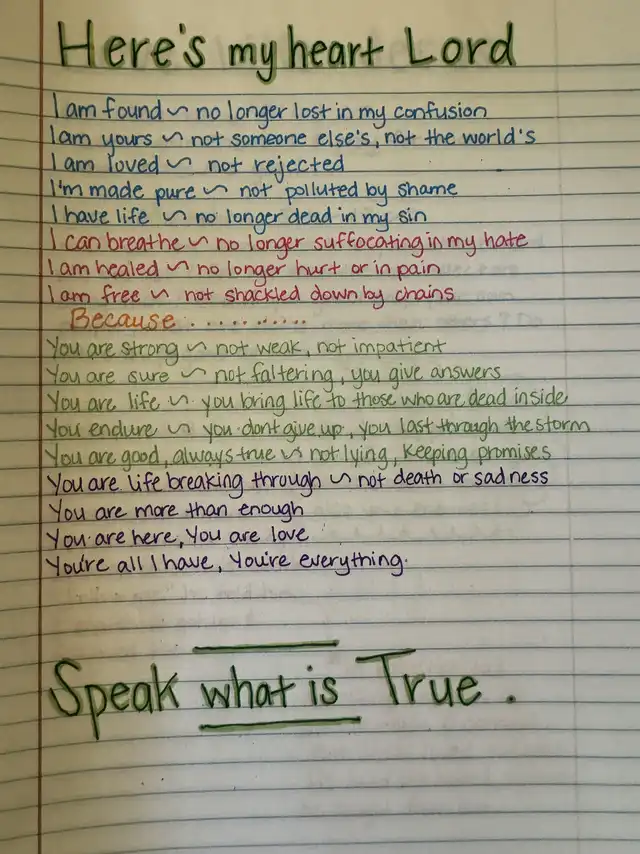 Here's my heart Lord
I am found ~ no longer lost in my confusion
I am yours ~ not someone else's, not the world's
I am loved ~ not rejected
I'm made pure ~ not polluted by shame
I have life ~ no longer dead in my sin
I can breathe ~ no longer suffocating in my hate
I am healed ~ no longer hurt or in pain
I am free ~ not shackled down by chains
Because ..........
You are strong ~ not weak, not impatient
You are sure ~ not faltering, you give answers
You are life ~ you bring life to those who are dead inside
You endure ~ you dont give up, you last through the storm
You are good, always true ~ not lying, keeping promises
You are life breaking through ~ not death or sadness
You are more than enough
You are here, You are love
You're all I have, You're everything.
Speak what is True.